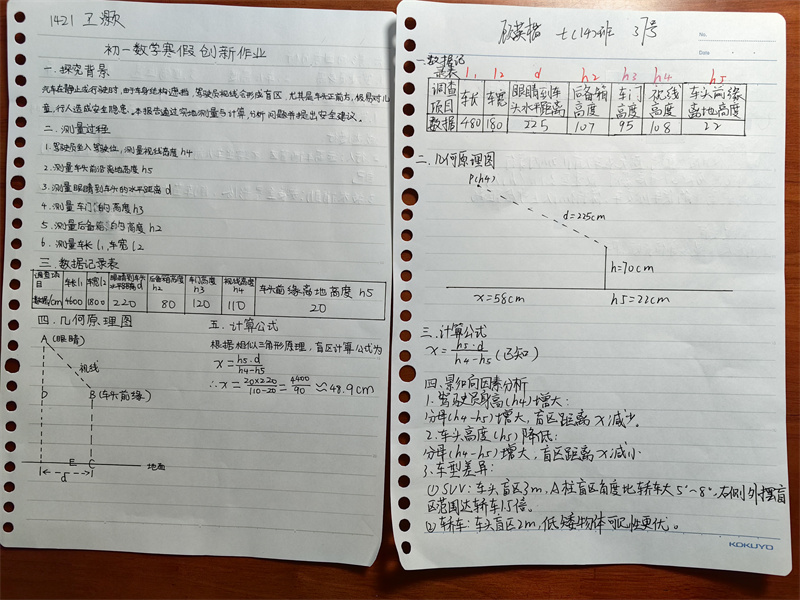 1421 王灏
初一数学寒假创新作业
一.探究背景
汽车在静止或行驶时,由于车身结构遮挡,驾驶员视线会形成盲区,尤其是车头正前方,极易对儿
童、行人造成安全隐患。本报告通过实地测量与计算,分析问题并提出安全建议。
二.测量过程
1.驾驶员坐入驾驶位,测量视线高度h4
2.测量车头前沿离地高度h5
3.测量眼睛到车头的水平距离d
4.测量车门的高度h3
5.测量后备箱的高度h2
6.测量车长l1,车宽l2
三.数据记录表
调查项目 车长l1 车宽l2 眼睛到车头水平距离d 后备箱高度h2 车门高度h3 视线高度h4 车头前缘离地高度h5
数据/cm 4600 1800 220 80 120 110 20
四.几何原理图
A(眼睛)
视线
D
B(车头前缘)
E C 地面
d
五.计算公式
根据相似三角形原理,盲区计算公式为
x=h5·d/h4-h5
∴x=20×220/110-20=4400/90≈48.9cm
七(14)班 37号
No.
Date
一.数据记录表
l1 l2 d h2 h3 h4 h5
调查项目 车长 车宽 眼睛到车头水平距离 后备箱高度 车门高度 视线高度 车头前缘离地高度
数据 480 180 225 107 95 108 22
二.几何原理图
P(h4)
d=225cm
h=70cm
x=58cm h5=22cm
三.计算公式
x=h5·d/h4-h5(已知)
四.影响因素分析
1.驾驶员身高(h4)增大:
分母(h4-h5)增大,盲区距离x减少。
2.车头高度(h5)降低:
分母(h4-h5)增大,盲区距离x减小
3.车型差异:
①SUV:车头盲区3m,A柱盲区角度比轿车大5°~8°,右侧外摆盲
区范围达轿车1.5倍。
②轿车:车头盲区2m,低矮物体可见性更优。
KOKUYO